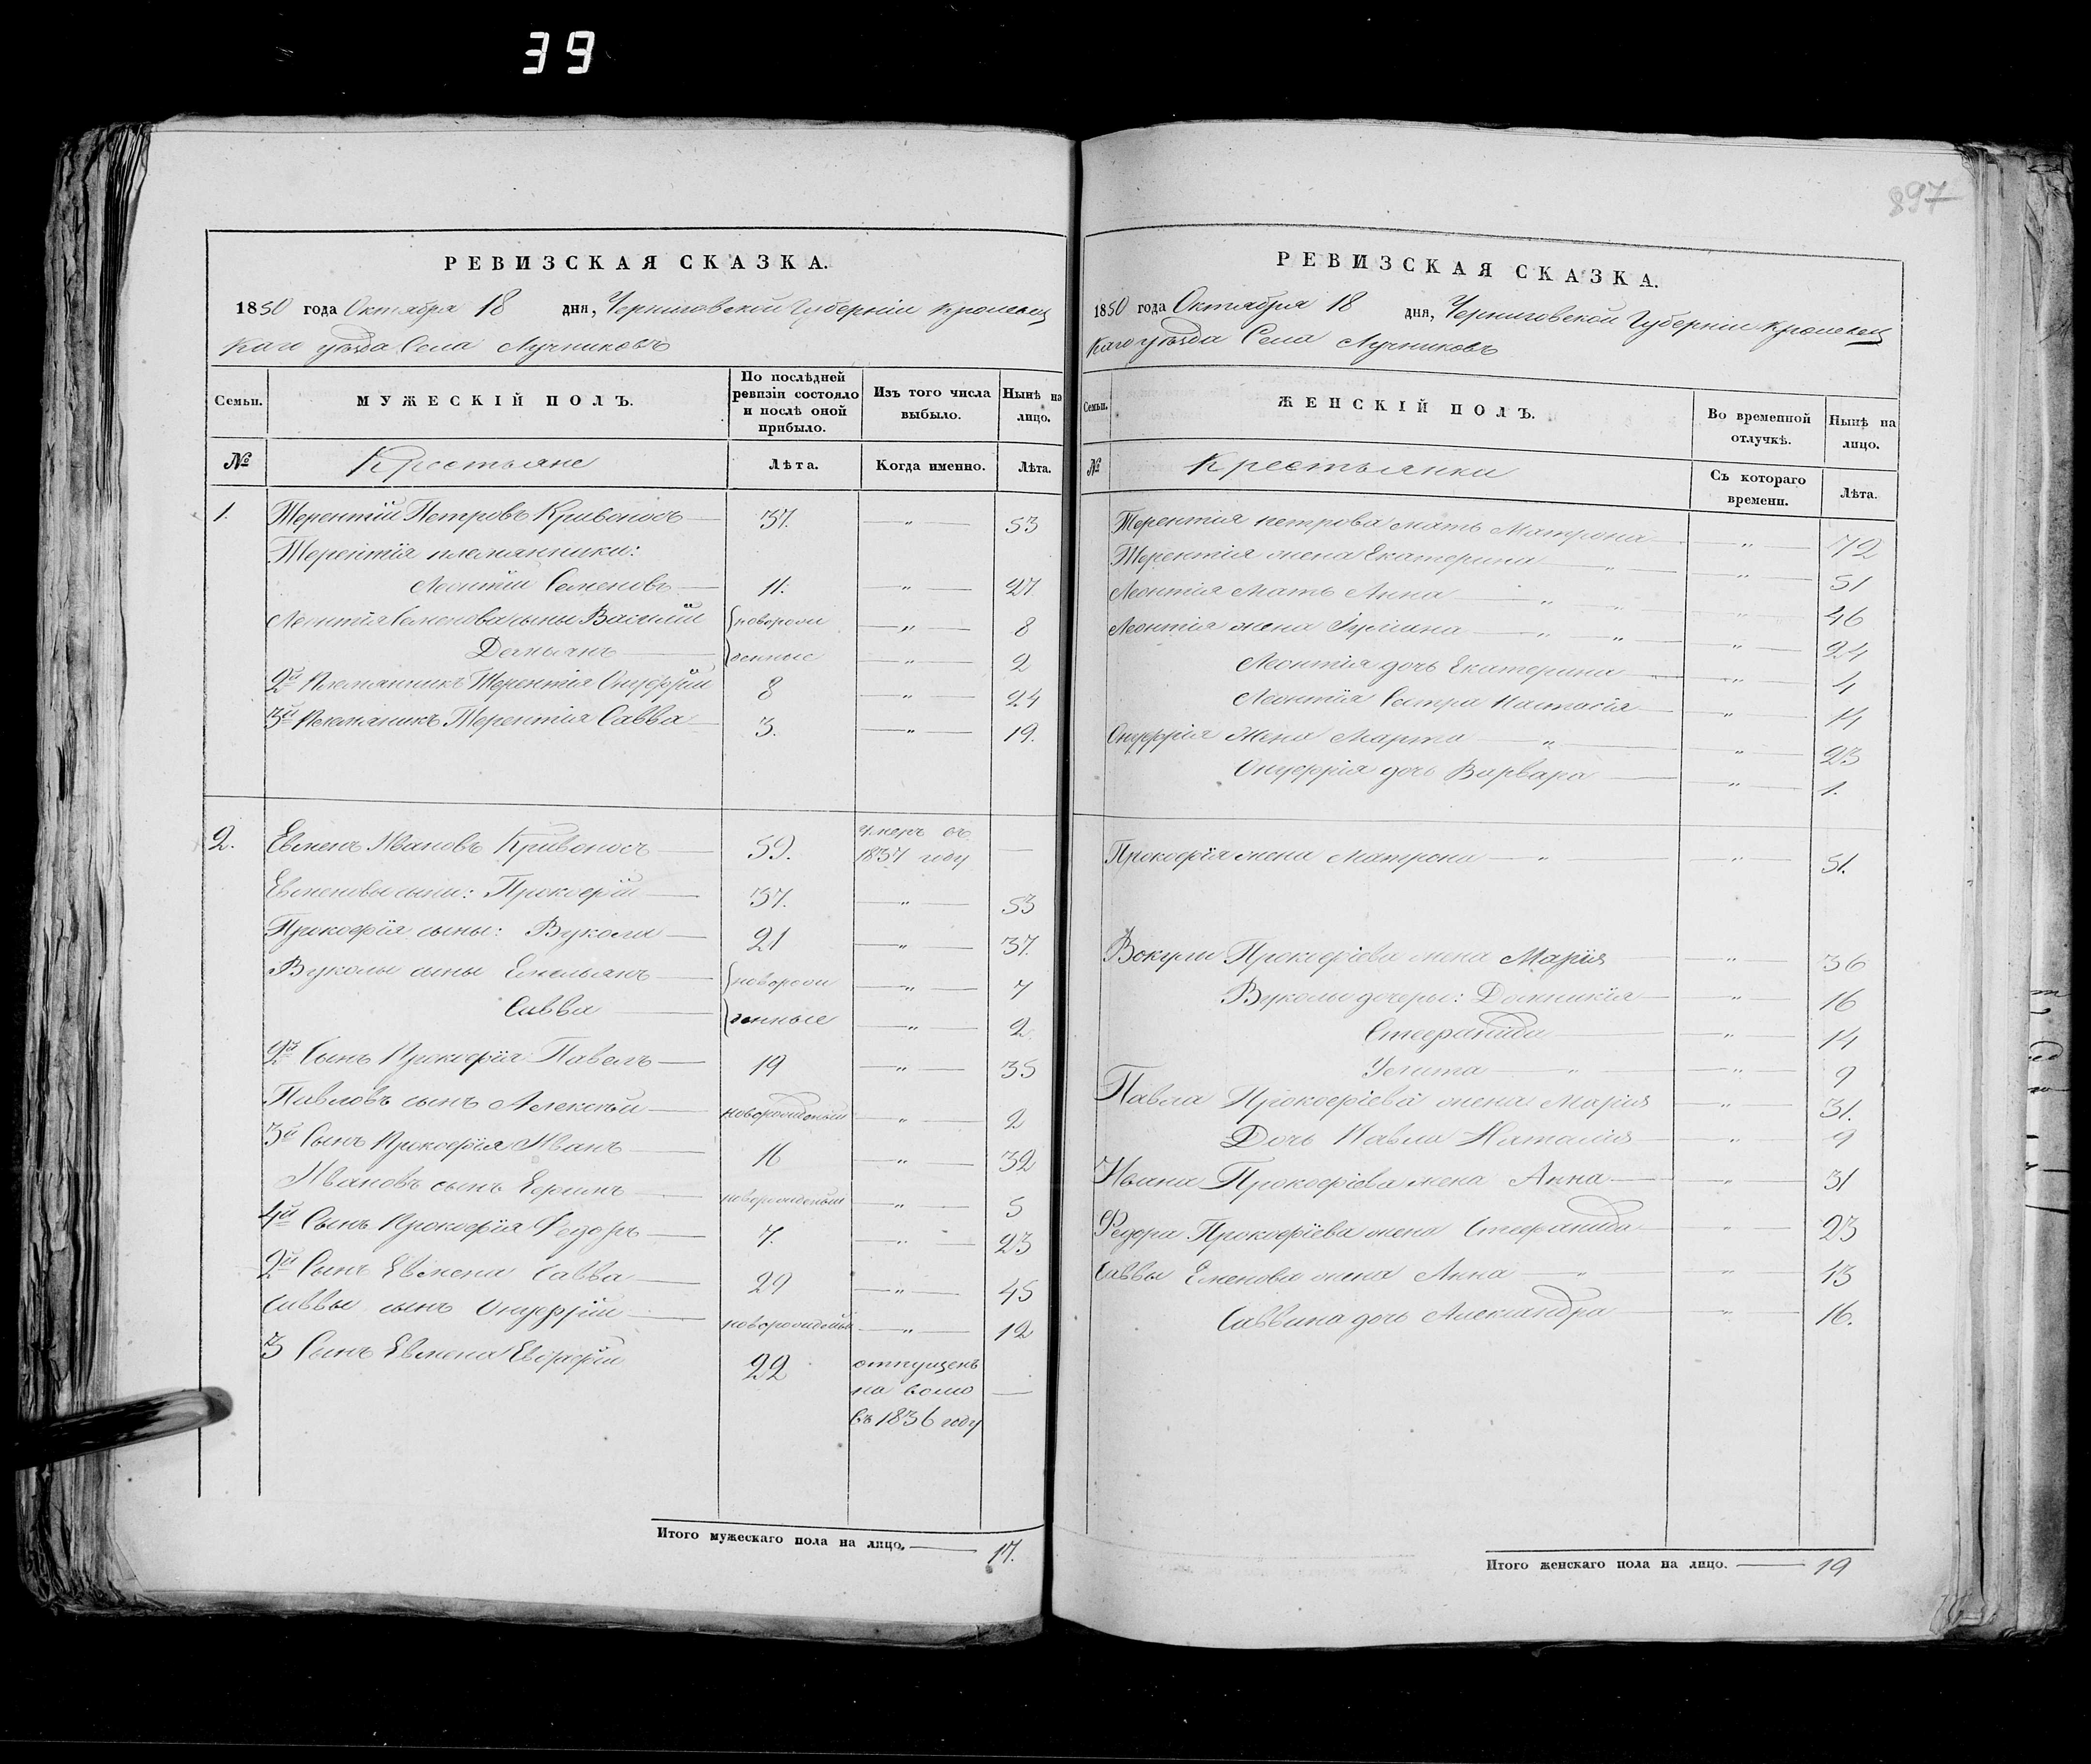 39
897
РЕВИЗСКАЯ СКАЗКА.
1850 года Октября 18 дня, Черниговской Губерніи Кролевец
каго уѣзда Села Лучниковъ
Семьи. МУЖЕСКІЙ ПОЛЪ. По послѣдней ревизіи состояло и послѣ оной прибыло. Изъ того числа выбыло. Нынѣ на лицо.
№ Крестьяне Лѣта. Когда именно. Лѣта.
1. Терентій Петровъ Кривоносъ — 37. — „ — 53
Терентія племянники:
Леонтій Семеновъ — 11. — „ — 27
Леонтія Семенова сыны Василій {новорож — „ — 8
Демьянъ — }денные — „ — 2
2й Племянникъ Терентія Онуфрій 8 — „ — 24
3й Племяникъ Терентія Савва — 3. — „ — 19.
2. Евменъ Ивановъ Кривоносъ — 59. умеръ въ 1837 году —
Евменовы сыны: Прокофій — 37. — „ — 53
Прокофія сыны: Вукола — 21 — „ — 37.
Вуколы сыны Емельянъ — {новорож — „ — 7
Савва — {денные — „ — 2
2й Сынъ Прокофія Павелъ — 19 — „ — 35
Павловъ сынъ Алексѣй — новорожденый — „ — 2
3й Сынъ Прокофія Иванъ — 16 — „ — 32
Ивановъ сынъ Ефимъ — новорожденый — „ — 5
4й Сынъ Прокофія Федоръ — 7. — „ — 23
2й Сынъ Евмена Савва — 29 — „ — 45
Саввы сынъ Онуфрій — новорожденый — „ — 12
3 Сынъ Евмена 22 отпущенъ
на волю —
въ 1836 году
Итого мужескаго пола на лицо. — 17.
РЕВИЗСКАЯ СКАЗКА.
1850 года Октября 18 дня, Черниговской Губерніи Кролевец
каго уѣзда Села Лучниковъ
Семьи. ЖЕНСКІЙ ПОЛЪ. Во временной отлучкѣ. Нынѣ на лицо.
№ Крестьянки Съ котораго времени. Лѣта.
Терентія петрова мать Матрона — „ — 72
Терентія жена Екатерина — „ — „ — 51
Леонтія Мать Анна — „ — „ — 46
Леонтія жена Іуліана — „ — „ — 24
Леонтія дочь Екатерина — „ — 4
Леонтія Сестра Настасія — „ — 14
Онуфрія Жена Марта — „ — „ — 23
Онуфрія дочь Варвара — „ — 1.
Прокофія жена Матрона — „ — „ — 51.
Вокулы Прокофіева жена Марія — „ — 36
Вуколы дочеры: Домникія — „ — 16
Стефанида — „ — 14
Улита — „ — „ — 9
Павла Прокофіева жена Марія — „ — 31.
Дочь Павла Наталія — „ — 9
Ивана Прокофіева жена Анна — „ — 31
Федора Прокофіева жена Стефанида — „ — 23
Саввы Еменова жена Анна — „ — „ — 43
Саввина дочь Александра — „ — 16.
Итого женскаго пола на лицо. — 19